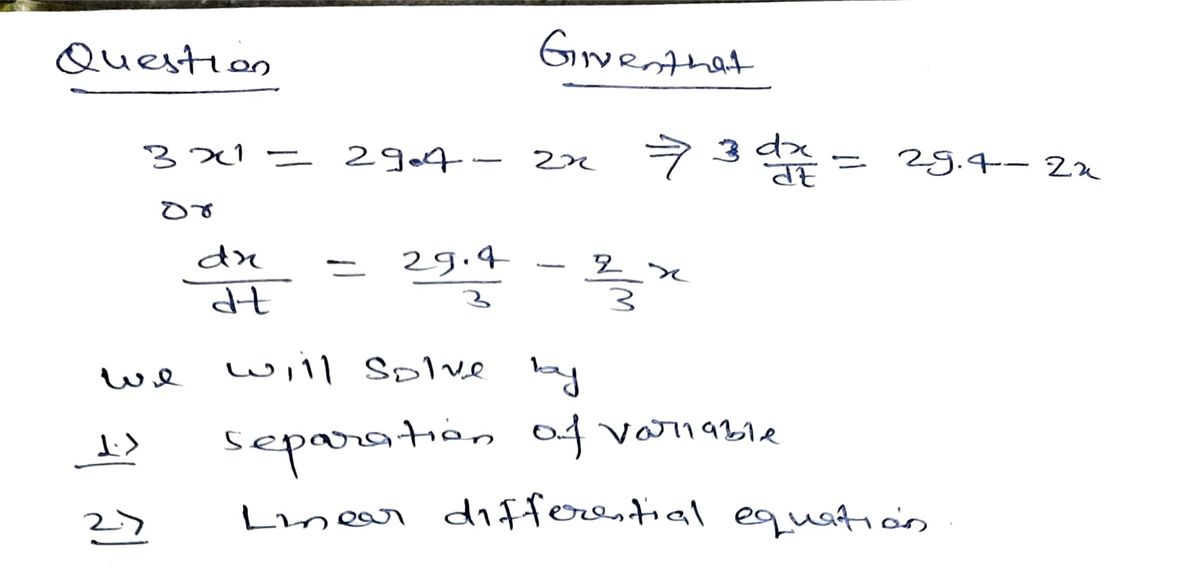 Question Given that
3x' = 29.4 - 2x ⇒ 3 dx/dt = 29.4 - 2x
or
dx/dt = 29.4/3 - 2/3 x
we will solve by
1.> separation of variable
2.> Linear differential equation.